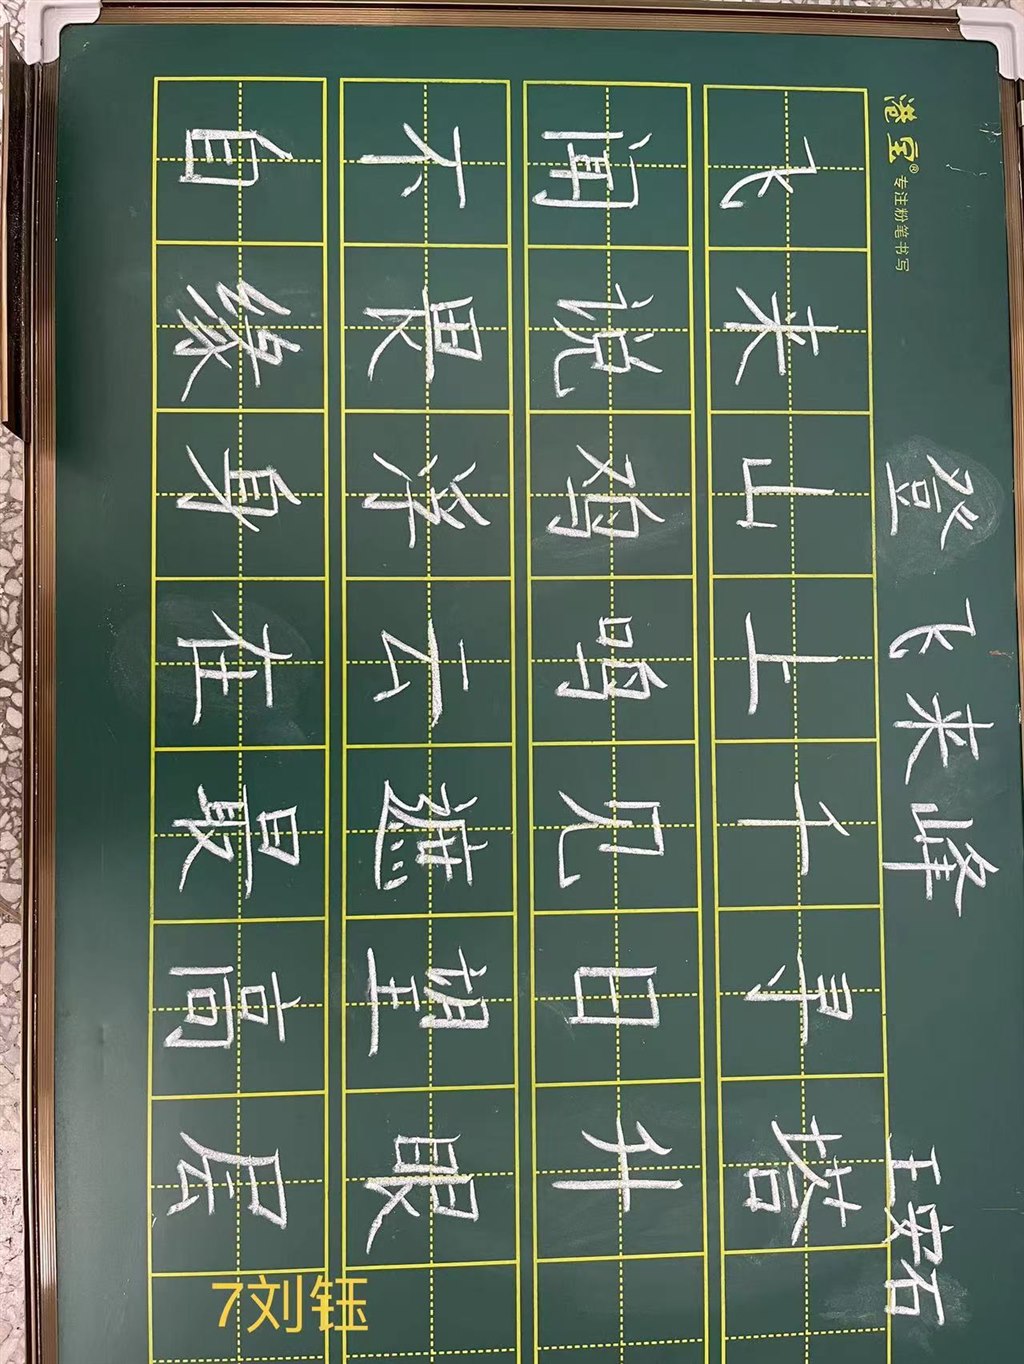 港宝® 专注粉笔书写
登飞来峰 王安石
飞来山上千寻塔
闻说鸡鸣见日升
不畏浮云遮望眼
自缘身在最高层
7刘钰